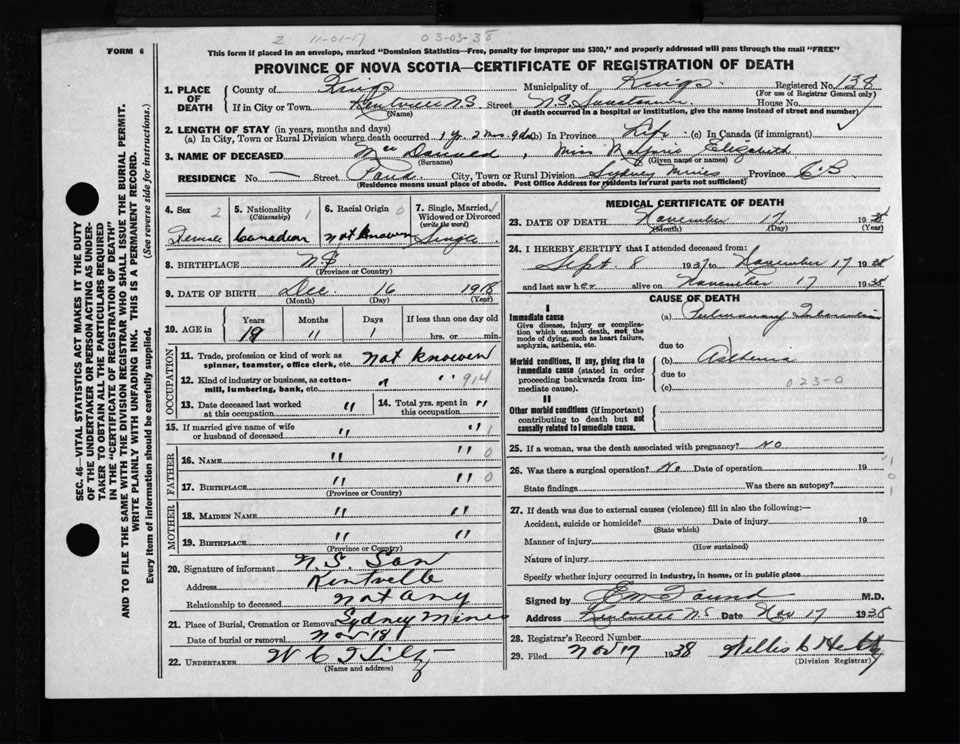 2 11-01-17 03-03-38
FORM 6
This form if placed in an envelope, marked "Dominion Statistics—Free, penalty for improper use $300," and properly addressed will pass through the mail "FREE"
PROVINCE OF NOVA SCOTIA—CERTIFICATE OF REGISTRATION OF DEATH
SEC. 46—VITAL STATISTICS ACT MAKES IT THE DUTY
OF THE UNDERTAKER OR PERSON ACTING AS UNDER-
TAKER TO OBTAIN ALL THE PARTICULARS REQUIRED
IN THE "CERTIFICATE OF REGISTRATION OF DEATH"
AND TO FILE THE SAME WITH THE DIVISION REGISTRAR WHO SHALL ISSUE THE BURIAL PERMIT.
WRITE PLAINLY WITH UNFADING INK. THIS IS A PERMANENT RECORD.
Every item of information should be carefully supplied. (See reverse side for instructions.)
1. PLACE OF DEATH County of Kings Municipality of Kings Registered No. 138
(For use of Registrar General only)
If in City or Town Kentville N.S. Street N.S. Sanatorium House No.
(Name) (If death occurred in a hospital or institution, give name instead of street and number)
2. LENGTH OF STAY (in years, months and days)
(a) In City, Town or Rural Division where death occurred 1 yr. 2 mos. 9 da (b) In Province Life (c) In Canada (if immigrant)
3. NAME OF DECEASED MacDonald, Miss Marjorie Elizabeth
(Surname) (Given name or names)
RESIDENCE No. — Street Pond City, Town or Rural Division Sydney Mines Province C.B
(Residence means usual place of abode. Post Office Address for residents in rural parts not sufficient)
4. Sex 2 Female
5. Nationality (Citizenship) 1 Canadian
6. Racial Origin 0 Not known
7. Single, Married, Widowed or Divorced (write the word) Single
8. BIRTHPLACE N.S
(Province or Country)
9. DATE OF BIRTH Dec. 16 1918
(Month) (Day) (Year)
10. AGE in Years Months Days If less than one day
19 11 1 hrs. or min.
OCCUPATION
11. Trade, profession or kind of work as spinner, teamster, office clerk, etc. Not known
12. Kind of industry or business, as cotton-mill, lumbering, bank, etc. " " 914
13. Date deceased last worked at this occupation "
14. Total yrs. spent in this occupation "
15. If married give name of wife or husband of deceased " " 1
FATHER
16. NAME " " 0
17. BIRTHPLACE " " 0
(Province or Country)
MOTHER
18. MAIDEN NAME " "
19. BIRTHPLACE " "
(Province or Country)
20. Signature of informant N.S. San
Address Kentville
Relationship to deceased Not any
21. Place of Burial, Cremation or Removal Sydney Mines
Date of burial or removal Nov 18
22. UNDERTAKER W C
(Name and address)
MEDICAL CERTIFICATE OF DEATH
23. DATE OF DEATH November 17 1938
(Month) (Day) (Year)
24. I HEREBY CERTIFY that I attended deceased from:
Sept. 8 1937 to November 17 1938
and last saw her alive on November 17 1938
CAUSE OF DEATH
I
Immediate cause
Give disease, injury or complication which caused death, not the mode of dying, such as heart failure, asphyxia, asthenia, etc.
(a) Pulmonary Tuberculosis
due to
Morbid conditions, if any, giving rise to immediate cause (stated in order proceeding backwards from immediate cause).
(b) Asthenia
due to
(c) 023-0
II
Other morbid conditions (if important) contributing to death but not causally related to immediate cause.
25. If a woman, was the death associated with pregnancy? No
26. Was there a surgical operation? No Date of operation 19
State findings Was there an autopsy?
1
0
1
27. If death was due to external causes (violence) fill in also the following:—
Accident, suicide or homicide? Date of injury 19
(State which)
Manner of injury
(How sustained)
Nature of injury
Specify whether injury occurred in industry, in home, or in public place
Signed by M.D.
Address Kentville NS Date Nov 17 1938
28. Registrar's Record Number
29. Filed Nov 17 1938 Willis
(Division Registrar)